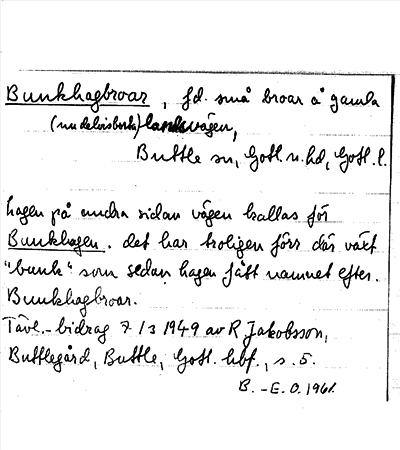 Bunkhagbroar, fd. små broar å gamla
(nu delvis borta) landsvägen,
Buttle sn, Gotl. n. hd, Gotl. l.
hagen på andra sidan vägen kallas för
Bunkhagen. det har troligen förr där växt
"bunk" som sedan hagen fått namnet efter.
Bunkhagbroar.
Tävl.-bidrag 7/3 1949 av R Jakobsson,
Buttlegård, Buttle, Gotl. hbf., s. 5.
B.-E. O. 1961.